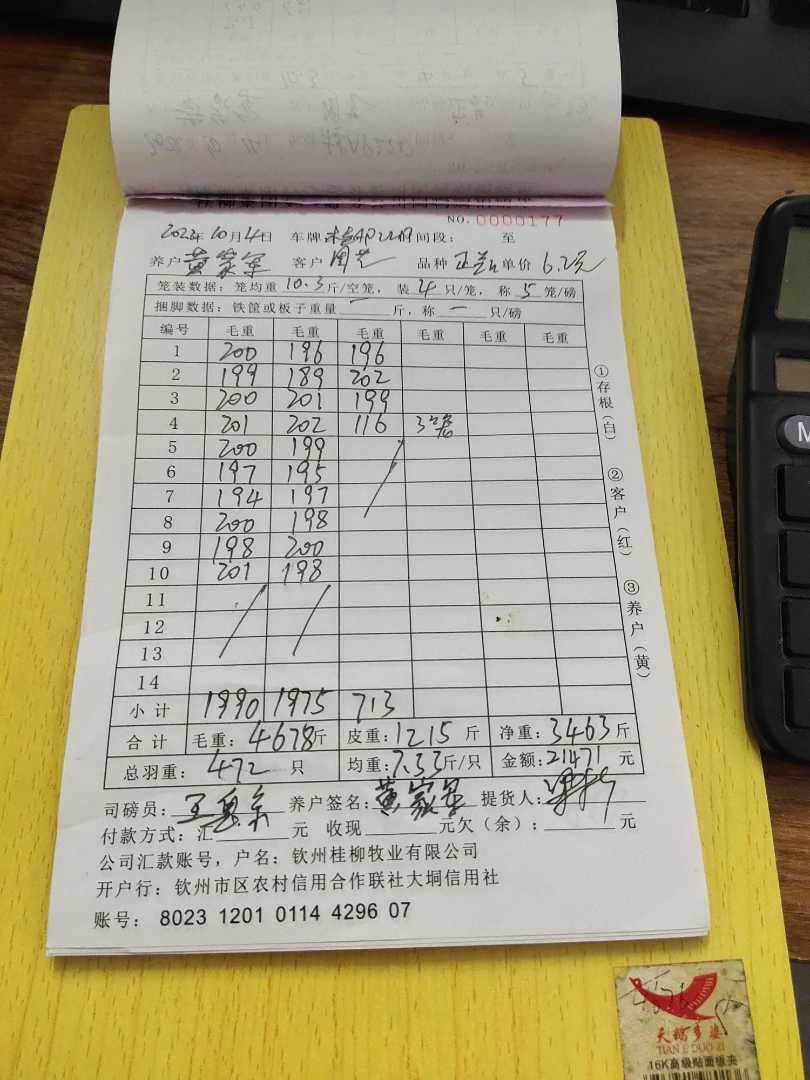 NO. 0000177
2022年10月4日 车牌 时间段： 至
养户 黄家军 客户 周芝 品种 单价 6.2元
笼装数据：笼均重 10.3 斤/空笼，装 4 只/笼，称 5 笼/磅
捆脚数据：铁筐或板子重量 一 斤，称 一 只/磅
编号 毛重 毛重 毛重 毛重 毛重 毛重
1 200 196 196
2 199 189 202
3 200 201 199
4 201 202 116 3笼
5 200 199
6 197 195
7 194 197
8 200 198
9 198 200
10 201 198
11
12
13
14
小计 1990 1975 713
合计 毛重：4678斤 皮重：1215 斤 净重：3463斤
总羽重：472 只 均重：7.33斤/只 金额：21471 元
①存根（白）
②客户（红）
③养户（黄）
司磅员： 养户签名：黄家军 提货人：
付款方式：汇 元 收现 元欠（余）： 元
公司汇款账号，户名：钦州桂柳牧业有限公司
开户行：钦州市区农村信用合作联社大垌信用社
账号：8023 1201 0114 4296 07
M
天鹅多姿
TIAN E DUO ZI
16K高级贴面板夹